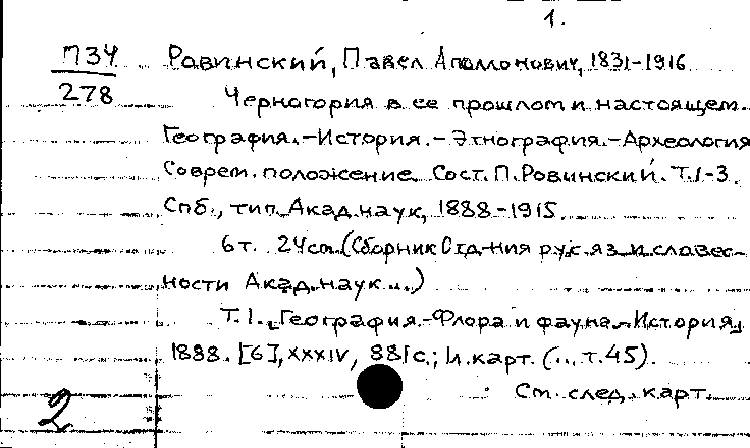 1.
П34 Ровинский, Павел Аполлонович, 1831-1916
278
Черногория в ее прошлом и настоящем.
География.-История.-Этнография.-Археология
Соврем. положение. Сост. П. Ровинский. Т.1-3.
Спб., тип. Акад. наук, 1888-1915.
6 т. 24 cm (Сборник Отд-ния рус. яз. и словес-
ности Акад. наук...)
Т.1. [География.-Флора и фауна.-История]
1888. [6], XXXIV, 881 с.; 1 л. карт. (.., т.45).
См. след. карт.
2